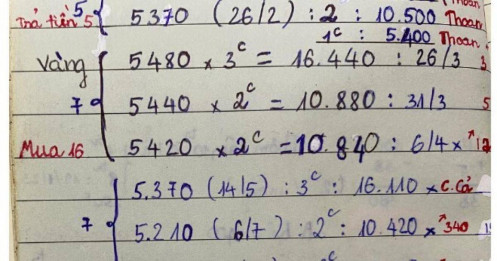 Trả tiền 5 5 { 5.370 (26/2) : 2 : 10.500 Thoan
1c : 5.400 Thoan
Vàng 5480 × 3c = 16.440 : 26/3 3
7 5440 × 2c = 10.880 : 31/3 5
Mua 16 5420 × 2c = 10.840 : 6/4 × 12
5.370 (14/5) : 3c : 16.110 × C. Cả
7 5.210 (6/7) : 2c : 10.420 × 340